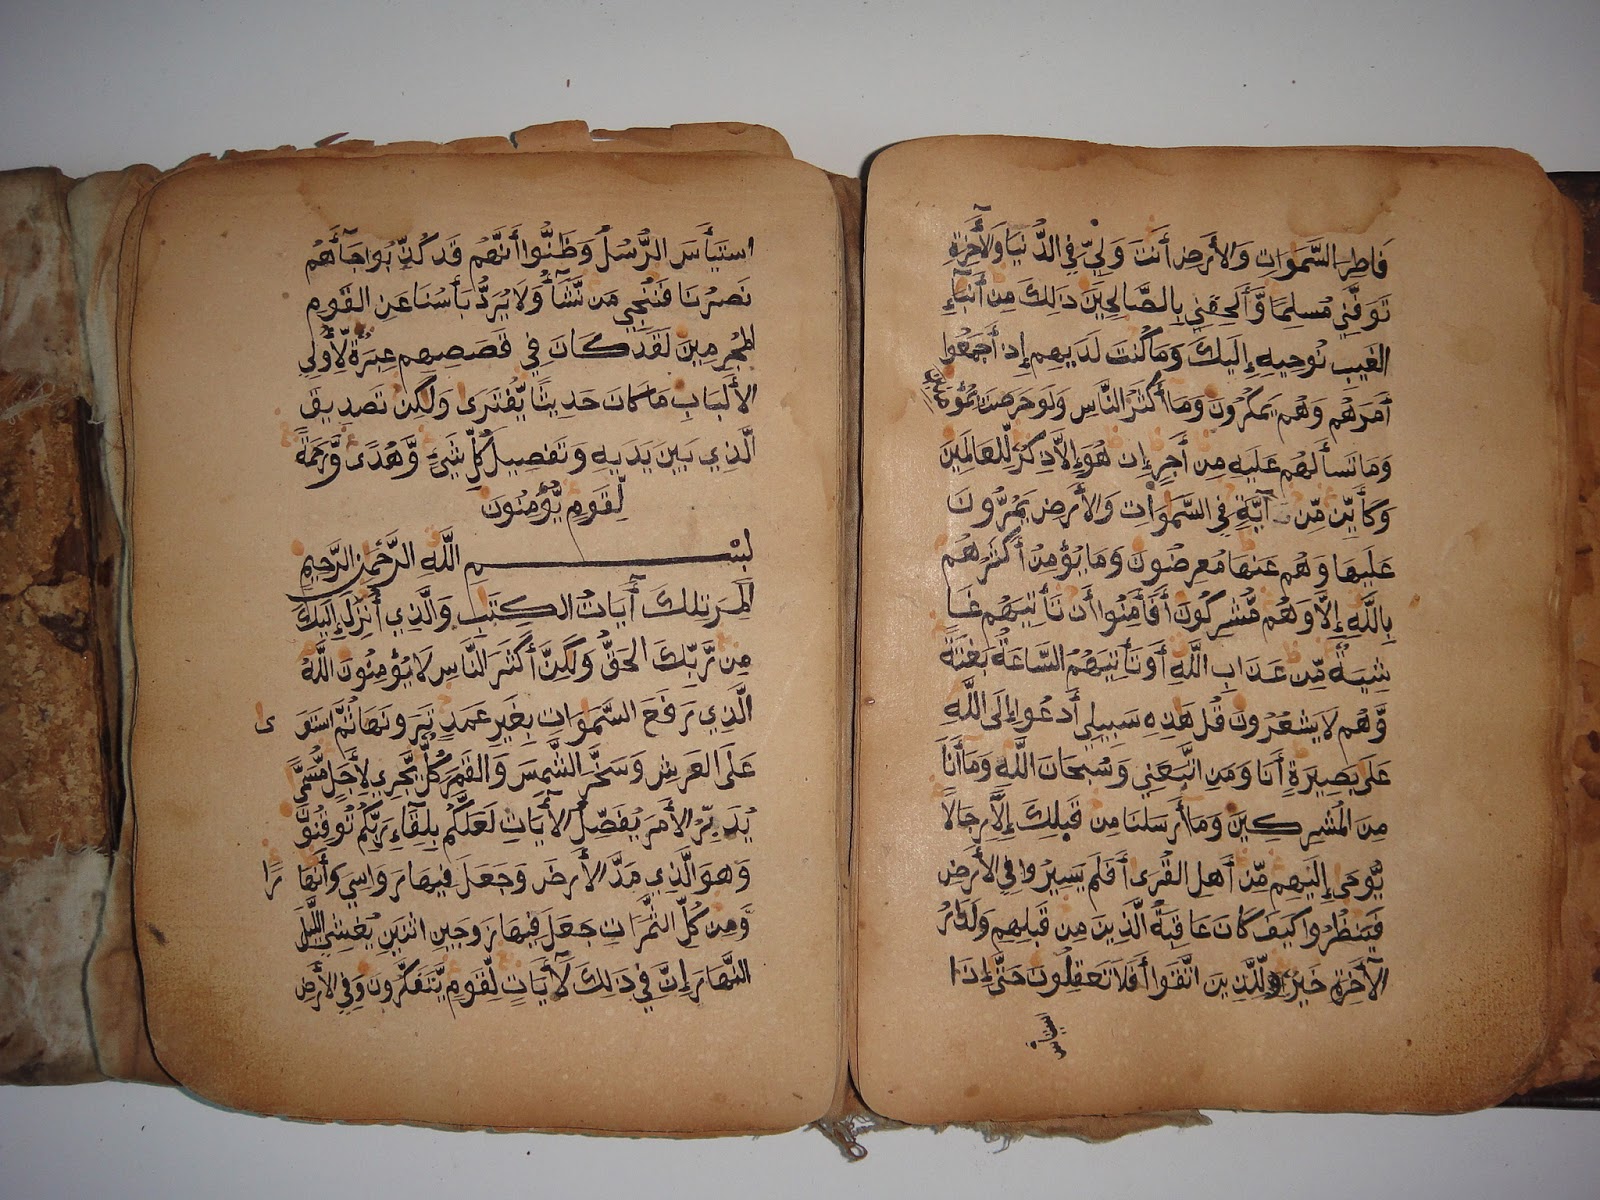 فَاطِرَ السَّمٰوَاتِ وَالأَرْضِ أَنْتَ وَلِيِّ فِي الدُّنْيَا وَالآخِرَةِ
تَوَفَّنِي مُسْلِمًا وَّأَلْحِقْنِي بِالصَّالِحِينَ ذَلِكَ مِنْ أَنْبَآءِ
الغَيْبِ نُوحِيهِ إِلَيْكَ وَمَا كُنْتَ لَدَيْهِمْ إِذْ أَجْمَعُوا
أَمْرَهُمْ وَهُمْ يَمْكُرُونَ وَمَا أَكْثَرُ النَّاسِ وَلَوْ حَرَصْتَ بِمُؤْمِنِينَ
وَمَا تَسْأَلُهُمْ عَلَيْهِ مِنْ أَجْرٍ إِنْ هُوَ إِلاَّ ذِكْرٌ لِّلْعَالَمِينَ
وَكَأَيِّنْ مِّنْ آيَةٍ فِي السَّمٰوَاتِ وَالأَرْضِ يَمُرُّونَ
عَلَيْهَا وَهُمْ عَنْهَا مُعْرِضُونَ وَمَا يُؤْمِنُ أَكْثَرُهُمْ
بِاللَّهِ إِلاَّ وَهُمْ مُّشْرِكُونَ أَفَأَمِنُوا أَنْ تَأْتِيَهُمْ غَا
شِيَةٌ مِّنْ عَذَابِ اللَّهِ أَوْ تَأْتِيَهُمُ السَّاعَةُ بَغْتَةً
وَّهُمْ لَا يَشْعُرُونَ قُلْ هَذِهِ سَبِيلِي أَدْعُوا إِلَى اللَّهِ
عَلَى بَصِيرَةٍ أَنَا وَمَنِ اتَّبَعَنِي وَسُبْحَانَ اللَّهِ وَمَا أَنَا
مِنَ الْمُشْرِكِينَ وَمَا أَرْسَلْنَا مِنْ قَبْلِكَ إِلاَّ رِجَالًا
يُّوحَى إِلَيْهِمْ مِّنْ أَهْلِ القُرَى أَفَلَمْ يَسِيرُوا فِي الأَرْضِ
فَيَنْظُرُوا كَيْفَ كَانَ عَاقِبَةُ الَّذِينَ مِنْ قَبْلِهِمْ وَلَدَارُ
الآخِرَةِ خَيْرٌ لِّلَّذِينَ اتَّقَوْا أَفَلَا تَعْقِلُونَ حَتَّى إِذَا
استيأس
اسْتَيْأَسَ الرُّسُلُ وَظَنُّوا أَنَّهُمْ قَدْ كُذِّبُوا جَآءَهُمْ
نَصْرُنَا فَنُنْجِي مَنْ نَّشَآءُ وَلَا يُرَدُّ بَأْسُنَا عَنِ القَوْمِ
المُجْرِمِينَ لَقَدْ كَانَ فِي قَصَصِهِمْ عِبْرَةٌ لِّأُولِي
الأَلْبَابِ مَا كَانَ حَدِيثًا يُّفْتَرَى وَلَكِنْ تَصْدِيقَ
الَّذِي بَيْنَ يَدَيْهِ وَتَفْصِيلَ كُلِّ شَيْءٍ وَّهُدًى وَّرَحْمَةً
لِّقَوْمٍ يُّؤْمِنُونَ
بِسْمِ اللَّهِ الرَّحْمٰنِ الرَّحِيمِ
الٓمٓرٰ تِلْكَ آيَاتُ الْكِتَبِ وَالَّذِي أُنْزِلَ إِلَيْكَ
مِنْ رَّبِّكَ الْحَقُّ وَلَكِنَّ أَكْثَرَ النَّاسِ لَا يُؤْمِنُونَ اللَّهُ
الَّذِي رَفَعَ السَّمٰوَاتِ بِغَيْرِ عَمَدٍ تَرَوْنَهَا ثُمَّ اسْتَوَى
عَلَى العَرْشِ وَسَخَّرَ الشَّمْسَ وَالقَمَرَ كُلٌّ يَّجْرِي لِأَجَلٍ مُّسَمًّى
يُدَبِّرُ الأَمْرَ يُفَصِّلُ الآيَاتِ لَعَلَّكُمْ بِلِقَآءِ رَبِّكُمْ تُوقِنُونَ
وَهُوَ الَّذِي مَدَّ الأَرْضَ وَجَعَلَ فِيهَا رَوَاسِيَ وَأَنْهَارًا
وَّمِنْ كُلِّ الثَّمَرَاتِ جَعَلَ فِيهَا زَوْجَيْنِ اثْنَيْنِ يُغْشِي اللَّيْلَ
النَّهَارَ إِنَّ فِي ذَلِكَ لَآيَاتٍ لِّقَوْمٍ يَّتَفَكَّرُونَ وَفِي الأَرْضِ